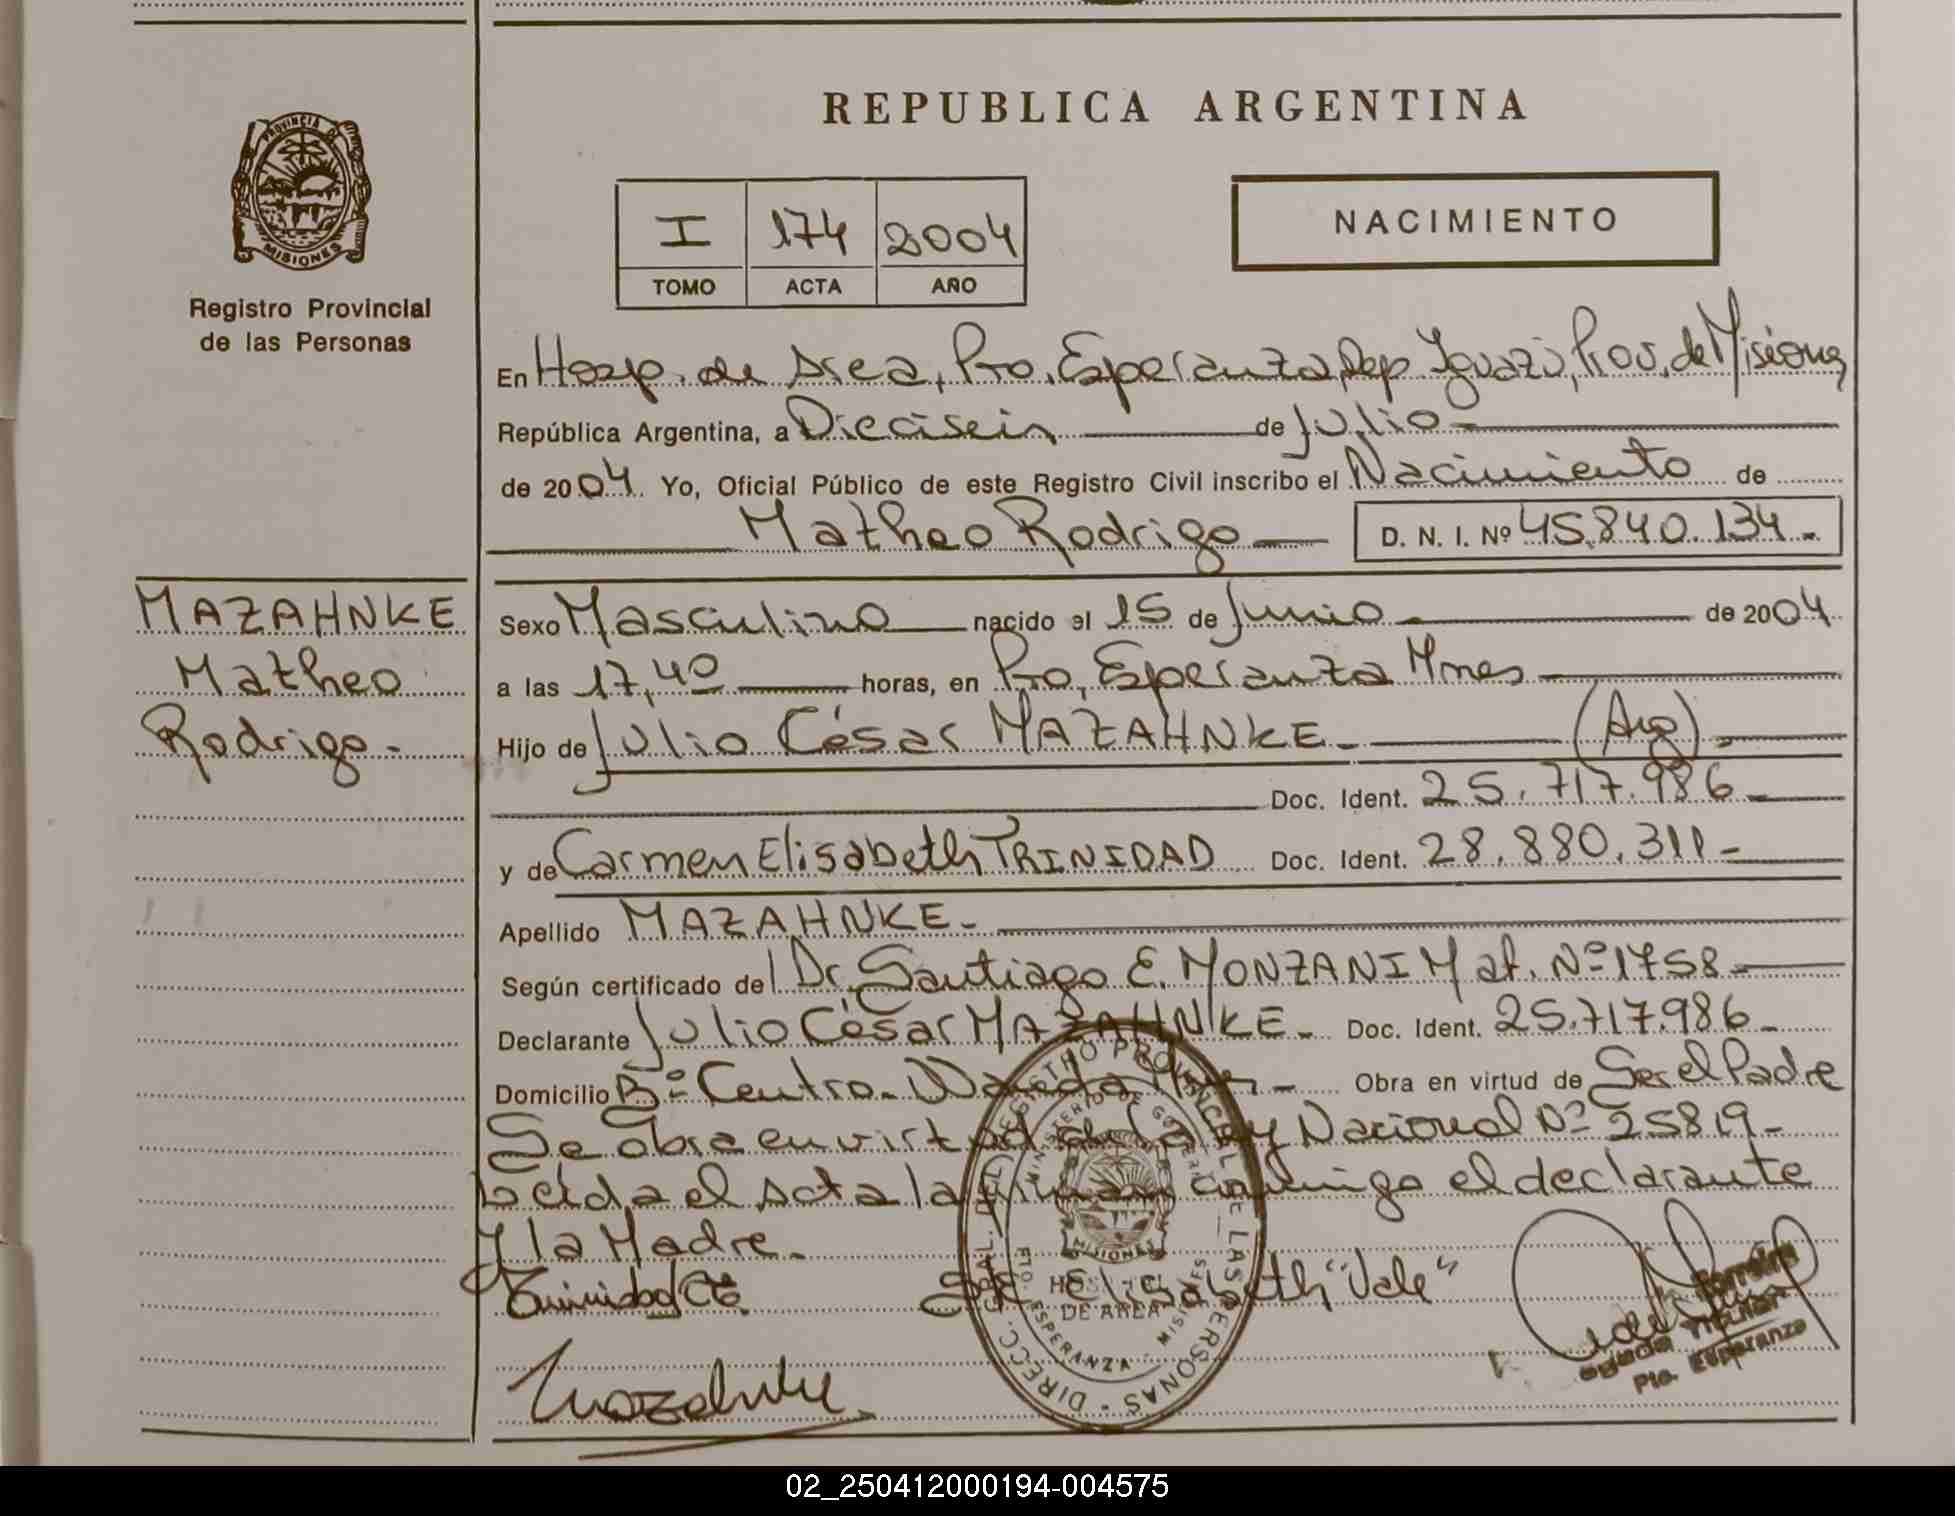 REPUBLICA ARGENTINA
PROVINCIA DE
MISIONES
Registro Provincial
de las Personas
NACIMIENTO
I 174 2004
TOMO ACTA AÑO
En Hosp. de Area, Pto. Esperanza, Dep Iguazú, Prov. de Misiones
República Argentina, a Dieciseis de Julio
de 2004. Yo, Oficial Público de este Registro Civil inscribo el Nacimiento de
Matheo Rodrigo D. N. I. Nº 45.840.134.-
MAZAHNKE
Matheo
Rodrigo.-
Sexo Masculino nacido el 15 de Junio de 2004
a las 17,40 horas, en Pto. Esperanza Mnes
Hijo de Julio César MAZAHNKE.- (Arg).-
Doc. Ident. 25.717.986-
y de Carmen Elisabeth TRINIDAD Doc. Ident. 28.880.311-
Apellido MAZAHNKE.-
Según certificado del Dr. Santiago E. MONZANI Mat. Nº 1758-
Declarante Julio César MAZAHNKE.- Doc. Ident. 25.717.986-
Domicilio Bº Centro. Wanda Mnes.- Obra en virtud de Ser el Padre
Se obra en virtud de la Ley Nacional Nº 25819-
Leída el acta la firman conmigo el declarante
y la Madre.-
Trinidad
Elisabeth "Vale"
Mazahnke
DIRECC. GRAL. DEL REGISTRO PROVINCIAL DE LAS PERSONAS
MINISTERIO DE GOBIERNO
MISIONES
HOSPITAL
DE AREA
PTO. ESPERANZA - MISIONES
Ferreira
Titular
Pto. Esperanza
02_250412000194-004575